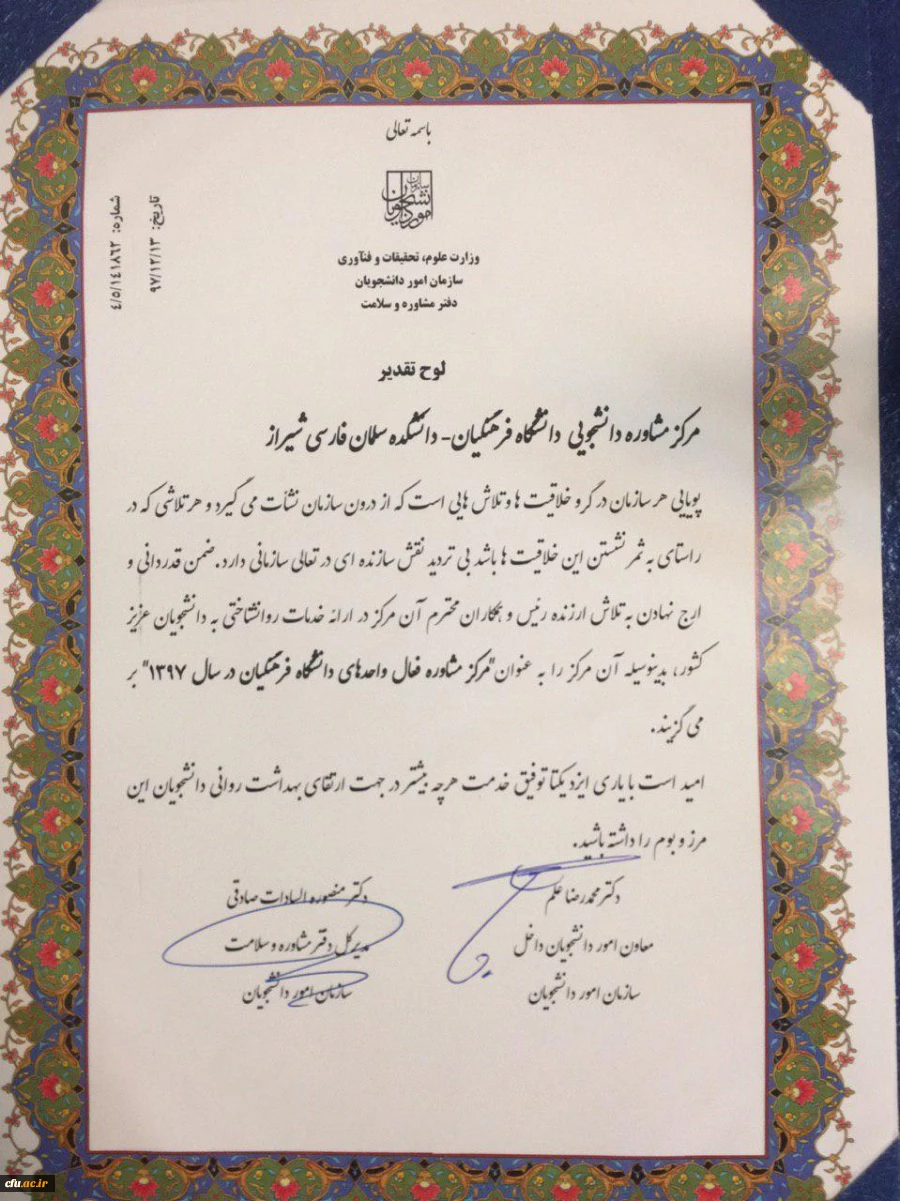 باسمه تعالی
سازمان
امور دانشجویان
وزارت علوم، تحقیقات و فنآوری
سازمان امور دانشجویان
دفتر مشاوره و سلامت
تاریخ: ۹۷/۱۲/۱۳
شماره: ۴/۵/۱۴۱۸۶۲
لوح تقدیر
مرکز مشاوره دانشجویی دانشگاه فرهنگیان- دانشکده سلمان فارسی شیراز
پویایی هر سازمان در گرو خلاقیت ها و تلاش هایی است که از درون سازمان نشأت می گیرد و هر تلاشی که در
راستای به ثمر نشستن این خلاقیت ها باشد بی تردید نقش سازنده ای در تعالی سازمانی دارد. ضمن قدردانی و
ارج نهادن به تلاش ارزنده رئیس و همکاران محترم آن مرکز در ارائه خدمات روانشناختی به دانشجویان عزیز
کشور، بدینوسیله آن مرکز را به عنوان "مرکز مشاوره فعال واحدهای دانشگاه فرهنگیان در سال ۱۳۹۷" بر
می گزیند.
امید است با یاری ایزد یکتا توفیق خدمت هرچه بیشتر در جهت ارتقای بهداشت روانی دانشجویان این
مرز و بوم را داشته باشید.
دکتر محمدرضا علم
معاون امور دانشجویان داخل
سازمان امور دانشجویان
دکتر منصوره السادات صادقی
مدیرکل دفتر مشاوره و سلامت
سازمان امور دانشجویان
cfu.ac.ir